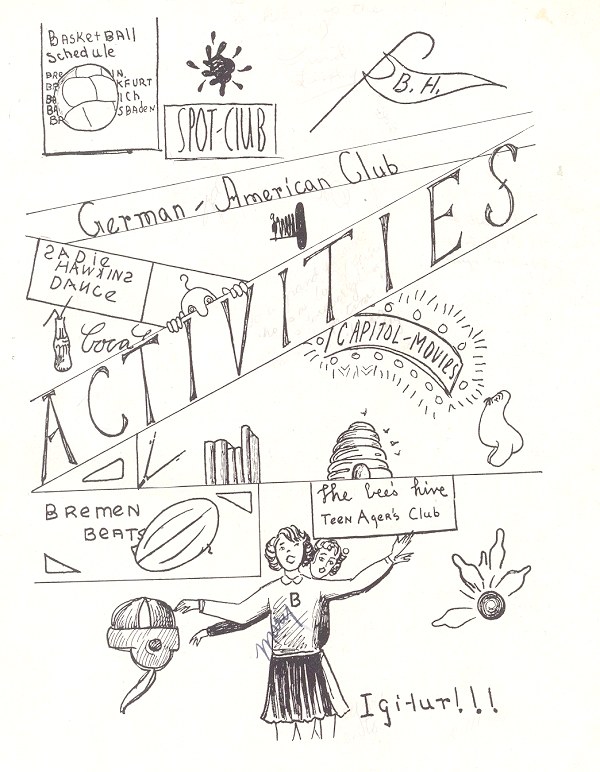 BasketBALL
Schedule
BRE IN.
KFURT
ICh
SBADEN
BA
SPOT-CLUB
B.H.
German-American Club
SADIE
HAWKINS
DANCE
Coca
ACTIVITIES
CAPITOL-MOVIES
BREMEN
BEATS
The bee's hive
TEEN AGER'S Club
B
Mary
Igitur!!!